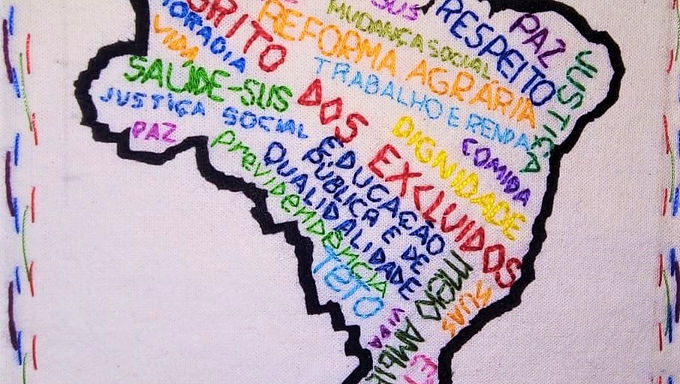 SUS
MUDANÇA SOCIAL
RESPEITO
PAZ
JUSTIÇA
MORADIA
VIDA
GRITO
REFORMA AGRÁRIA
TRABALHO E RENDA
SAÚDE-SUS
JUSTIÇA SOCIAL
PAZ
DOS EXCLUIDOS
DIGNIDADE
COMIDA
EDUCAÇÃO
PÚBLICA E DE
QUALIDALIDADE
previdendência
TETO
meio AMBIE
SUAS
VIDA